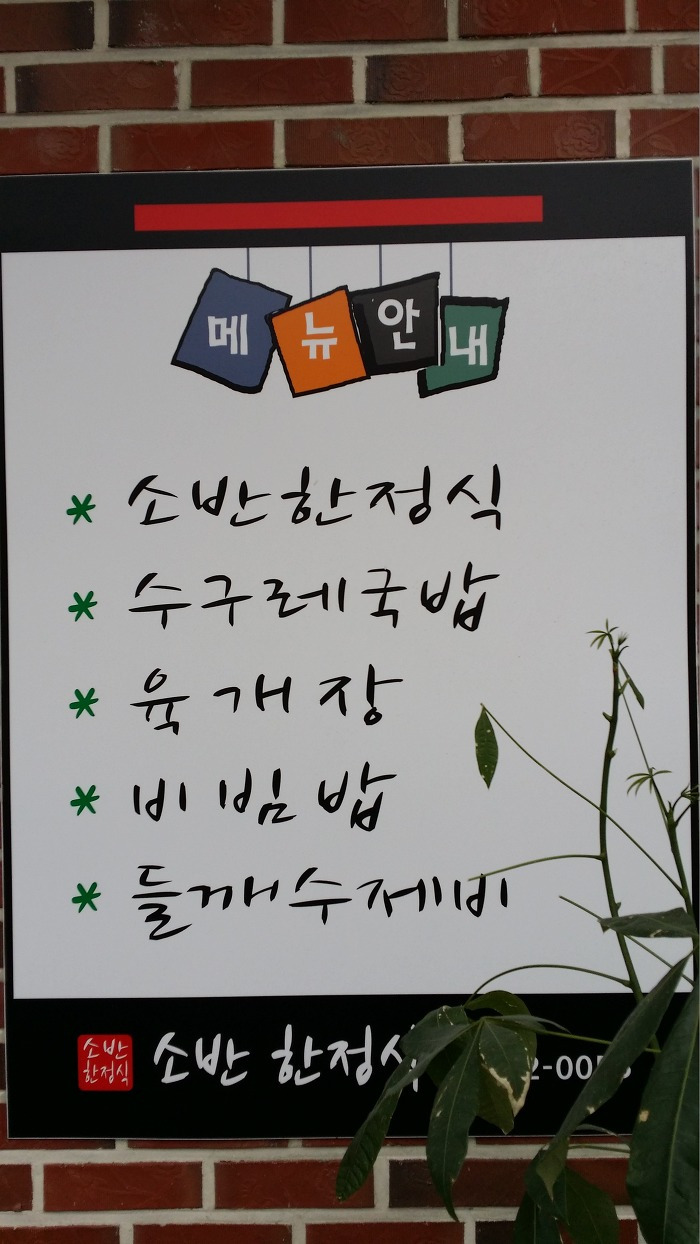 메뉴안내
* 소반한정식
* 수구레국밥
* 육개장
* 비빔밥
* 들깨수제비
소반
한정식
소반 한정식